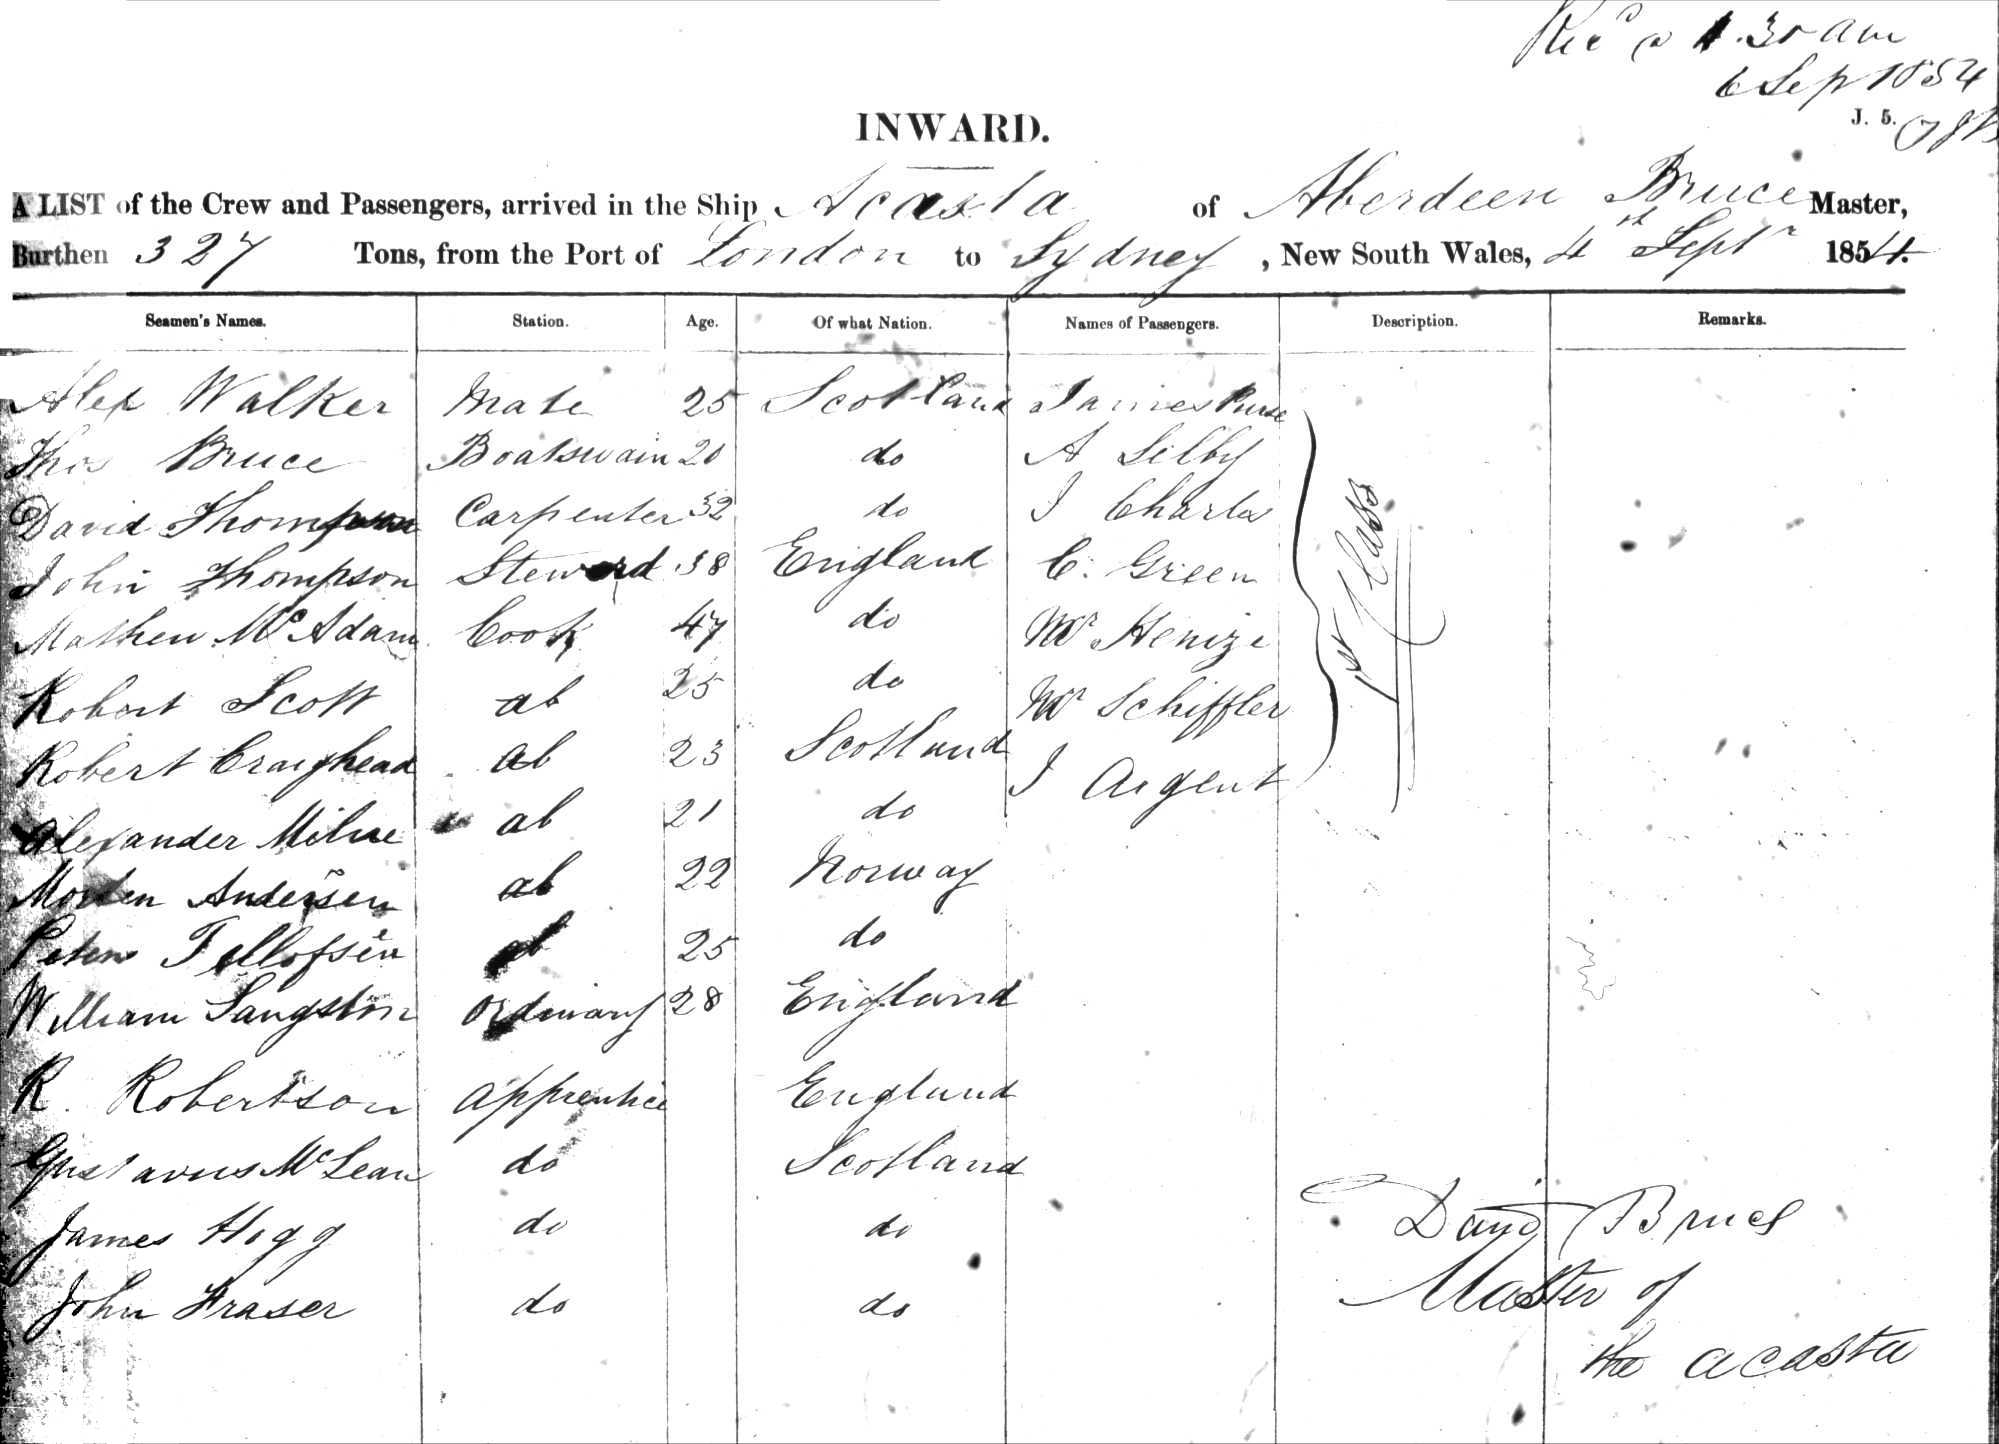 Recd @ 1.30 am
6 Sep 1854
J. 5.
INWARD.
A LIST of the Crew and Passengers, arrived in the Ship Acasta of Aberdeen Bruce Master,
Burthen 327 Tons, from the Port of London to Sydney, New South Wales, 4th Septr 1854.
Seamen's Names. Station. Age. Of what Nation. Names of Passengers. Description. Remarks.
Alex Walker Mate 25 Scotland James
Thos Bruce Boatswain 20 do A Silby
David Thompson Carpenter 32 do J Charles
John Thompson Steward 38 England C. Green
Mathew McAdam Cook 47 do Mr Henize
1st Class
Robert Scott ab 25 do Mr Schiffler
Robert Craighead ab 23 Scotland J Argent
Alexander Milne ab 21 do
Morten Andersen ab 22 Norway
Peter Tellofsen ab 25 do
William Langston Ordinary 28 England
R. Robertson Apprentice England
Gustavus McLean do Scotland
James Hogg do do
John Fraser do do
David Bruce
Master of
the Acasta